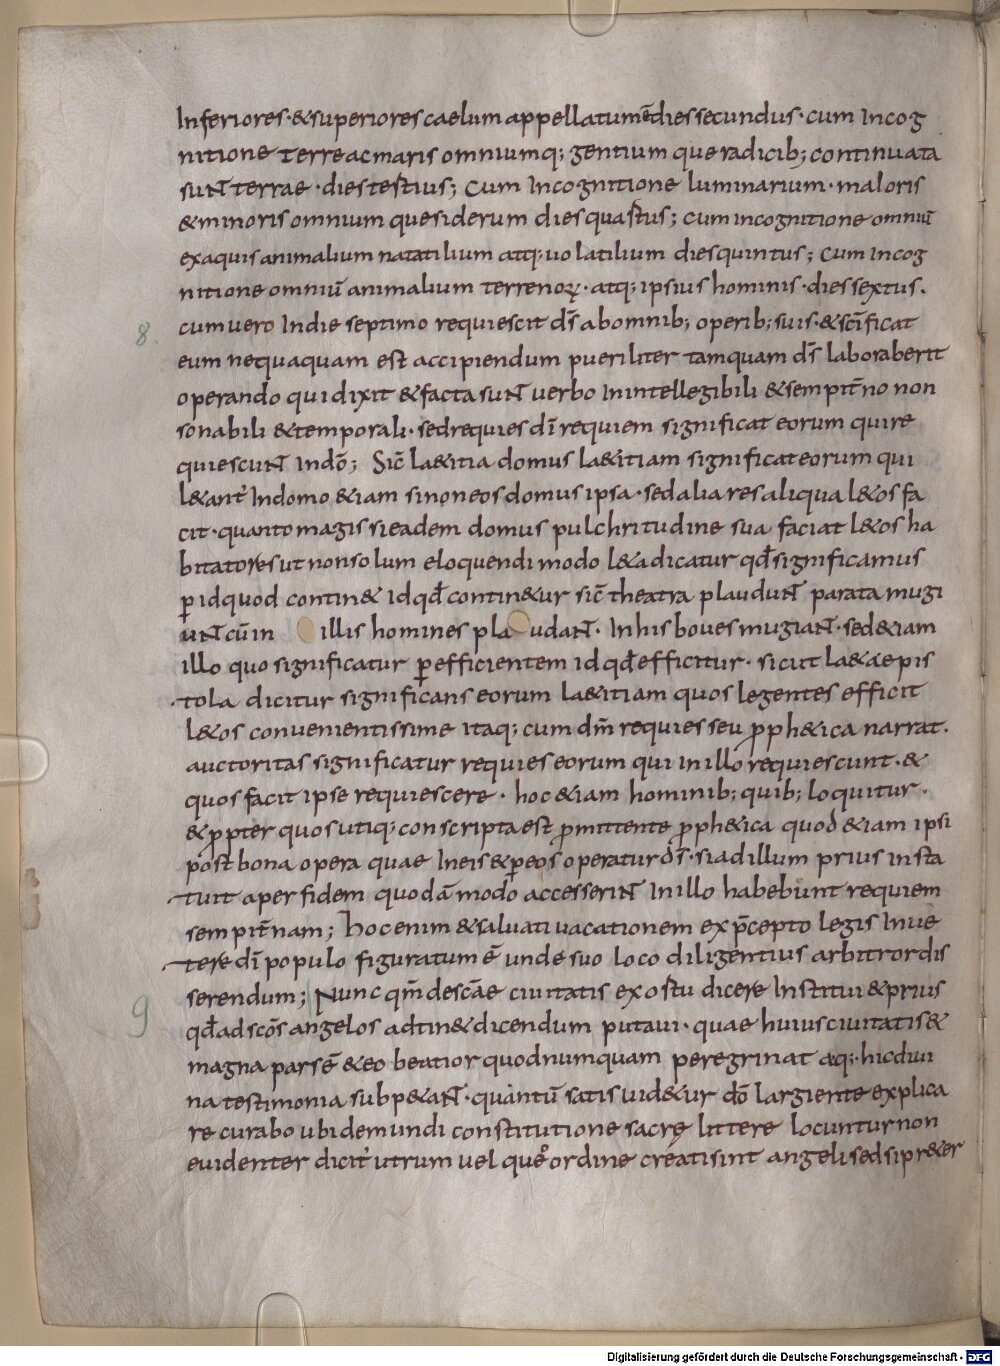 Inferiores·&superiores caelum appellatumē dies secundus· cum Incog
nitione terre ac maris omniumq; gentium que radicib; continuata
sunt terrae·dies testius; Cum Incognitione luminarium·maioris
&minoris omnium que siderum dies quastus; cum incognitione omniū
ex aquis animalium natatilium atq; uolatilium dies quintus; cum Incog
nitione omniū animalium terrenoꝝ·atq; ipsius hominis·dies sextus.
8.
cum uero In die septimo requiescit d̄s ab omnib; operib; suis·&sc̄ificat
eum nequaquam est accipiendum pueriliter tamquam d̄s laboraberit
operando qui dixit &facta sunt uerbo In intellegibili &sempit̄no non
sonabili &temporali·sed requies dī requiem significat eorum qui re
quiescunt Indō; Sic̄ la&itia domus la&itiam significat eorum qui
l&ant̄ In domo &iam si non eos domus ipsa·sed alia res aliqua l&os fa
cit·quanto magis si eadem domus pulchritudine sua faciat l&os ha
bitatores ut non solum eloquendi modo l&a dicatur qd̄ significamus
ꝑ id quod contin& id qd̄ contin&ur sic̄ theatra plaudunt parata mugi
unt cū in illis homines plaudant· In his boues mugiant·sed &iam
illo quo significatur ꝑ efficientem id qd̄ efficitur·sicut la&a epis
tola dicitur significans eorum la&itiam quos legentes efficit
l&os conuenientissime itaq; cum dm̄ requiesseu ꝓph&ica narrat.
auctoritas significatur requies eorum qui in illo requiescunt·&
quos facit ipse requiescere· hoc &iam hominib; quib; loquitur.
&ꝓpter quos utiq; conscripta est ꝓmittente ꝓph&ica quod &iam ipsi
post bona opera quae In eis &ꝑ eos operatur d̄s·si ad illum prius in sta
tuit aper fidem quodā modo accesserint In illo habebunt requiem
sempit̄nam; hoc enim &saluati uacationem ex p̄cepto legis In ue
tere dī populo figuratum ē unde suo loco diligentius arbitror dis
serendum; Nunc qm̄ de scāe ciuitatis exostu dicere Institui &prius
9
qd̄ ad scōs angelos adtin& dicendum putaui·quae huius ciuitatis&
magna pars ē &eo beatior quod numquam peregrinat aq;·hic diui
na testimonia subp&ant·quantū satis uid&ur dō largiente explica
re curabo ubi de mundi constitutione sacrę littere locuntur non
euidenter dicit̄ utrum uel quo ordine creati sint angeli sed si pr&er
Digitalisierung gefördert durch die Deutsche Forschungsgemeinschaft - DFG